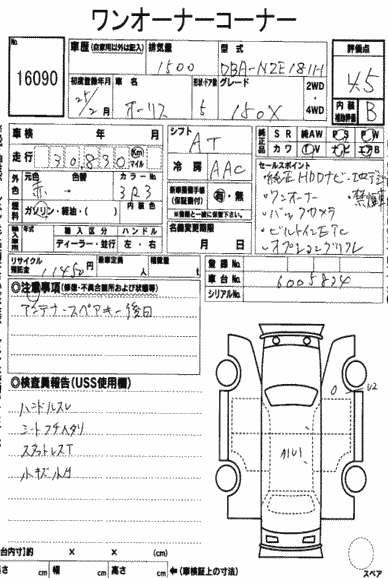 ワンオーナーコーナー
No. 16090
車歴 (自家用以外は記入)
排気量 1500
型式 DBA-NZE181H
評価点 4.5
初度登録年月
車名 オーリス
形状・ドア数 5
グレード 150X
2WD・4WD
内装補助評価 B
車検 年 月
シフト AT
純正品 SR 純AW PS PW
カワ TV ナビ エアB
走行 30830 Km マイル
冷房 AAC
セールスポイント
・純正HDDナビ
・ワンオーナー
・禁煙車
・バックカメラ
・ビルトインETC
外色 元色 赤 → 色替
カラーNo. 3R3
新車整備手帳(保証書付) 有・無
※備考と一緒に保管下さい
燃料 ガソリン・軽油・( )
内装色
名義変更期限 月 日
輸入車 年式
輸入区分 ハンドル
ディーラー・並行 左・右
リサイクル預託金 円
乗車定員 人
積載量 t
登録No.
車台No. 6005824
シリアルNo.
◎注意事項 (修復・不具合箇所および状態等)
アンテナ・スペアキー後日
◎検査員報告 (USS使用欄)
ハンドルスレ
小キズ小凹
U2
(荷台内寸)約 × × (cm)
高さ cm 幅 cm 高さ cm ←(車検証上の寸法)
スペア